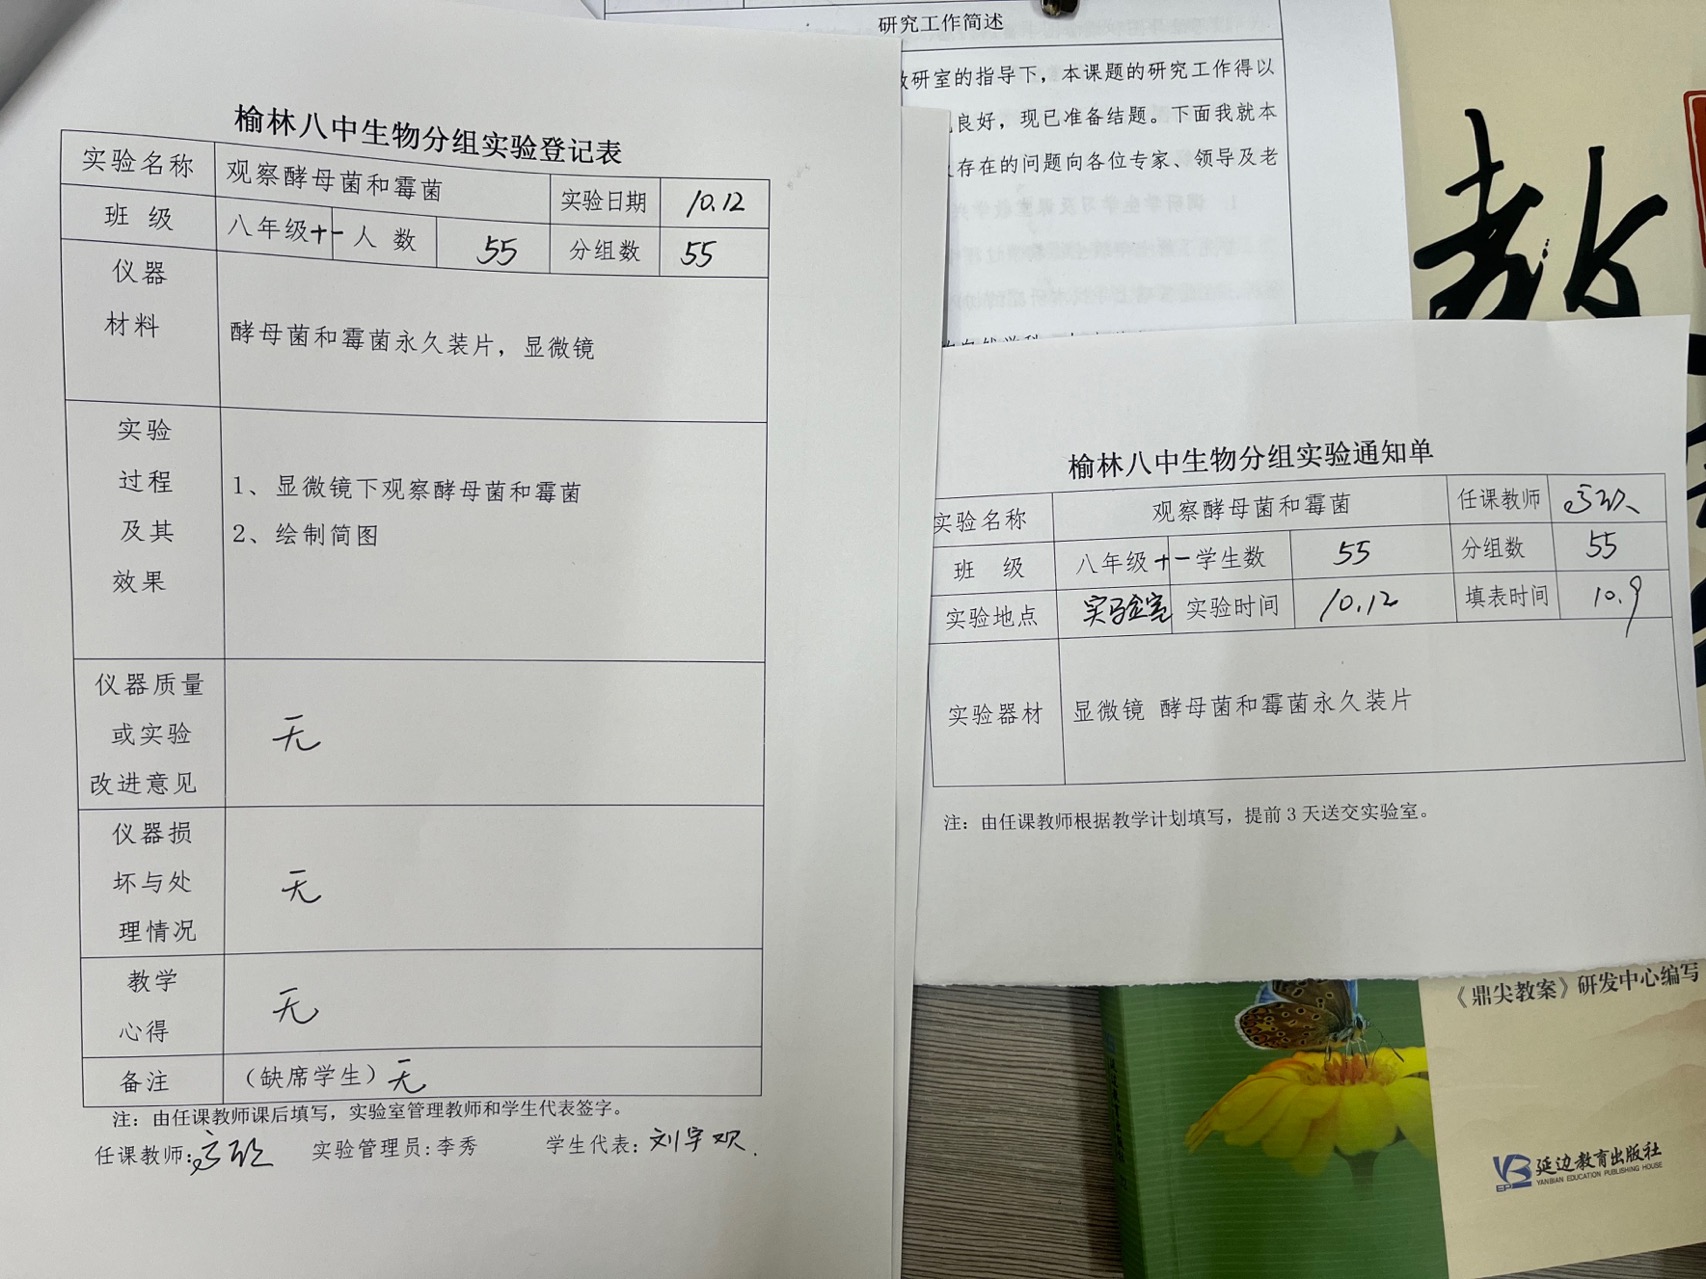 榆林八中生物分组实验登记表
实验名称 观察酵母菌和霉菌 实验日期 10.12
班 级 八年级十一 人 数 55 分组数 55
仪器
材料
酵母菌和霉菌永久装片，显微镜
实验
过程
及其
效果
1、显微镜下观察酵母菌和霉菌
2、绘制简图
仪器质量
或实验
改进意见
无
仪器损
坏与处
理情况
无
教学
心得
无
备注 （缺席学生）无
注：由任课教师课后填写，实验室管理教师和学生代表签字。
任课教师： 实验管理员：李秀 学生代表：刘宇欢.
研究工作简述
教研室的指导下，本课题的研究工作得以
良好，现已准备结题。下面我就本
存在的问题向各位专家、领导及老
榆林八中生物分组实验通知单
实验名称 观察酵母菌和霉菌 任课教师
班 级 八年级十一 学生数 55 分组数 55
实验地点 实验室 实验时间 10.12 填表时间 10.9
实验器材 显微镜 酵母菌和霉菌永久装片
注：由任课教师根据教学计划填写，提前3天送交实验室。
教
《鼎尖教案》研发中心编写
延边教育出版社
YANBIAN EDUCATION PUBLISHING HOUSE